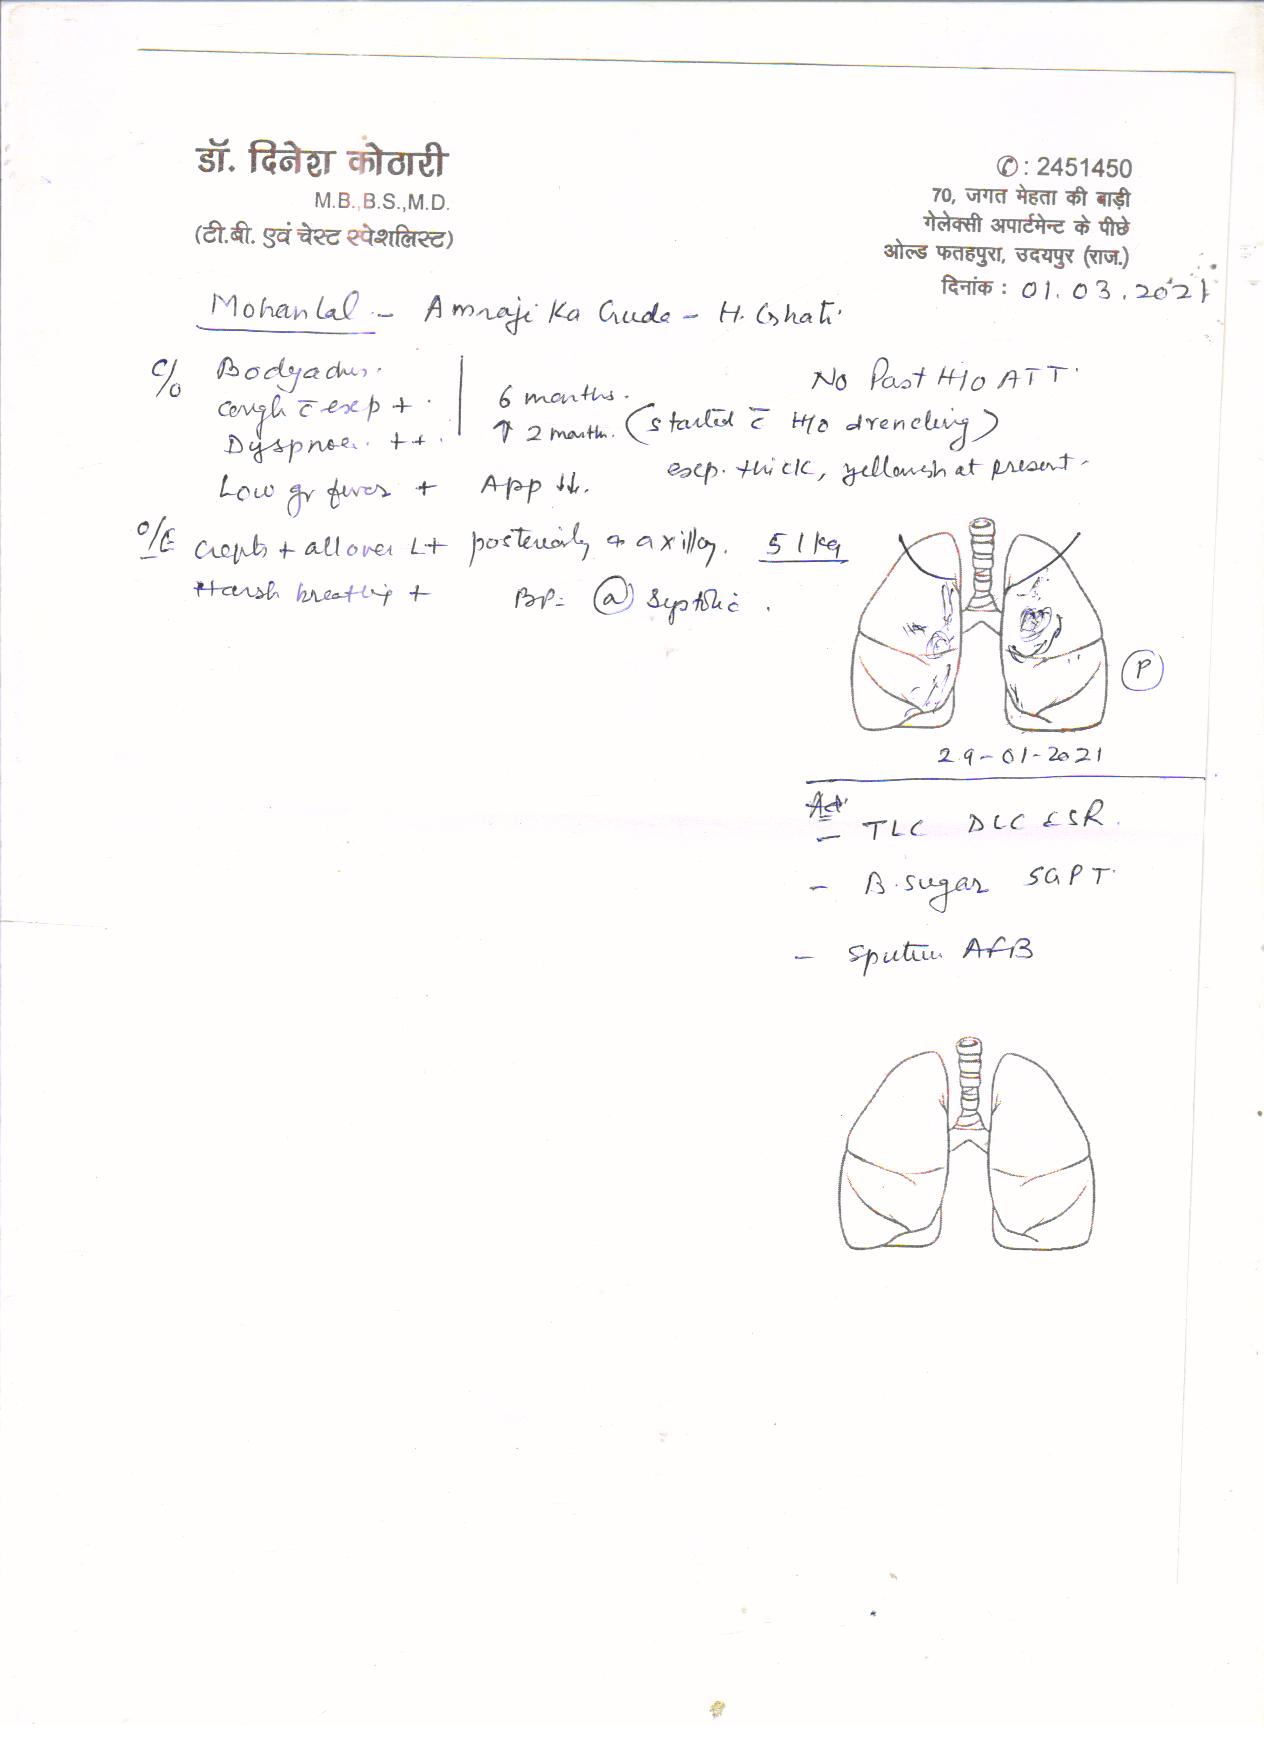 डॉ. दिनेश कोठारी
M.B.,B.S.,M.D.
(टी.बी. एवं चेस्ट स्पेशलिस्ट)
✆: 2451450
70, जगत मेहता की बाड़ी
गेलेक्सी अपार्टमेन्ट के पीछे
ओल्ड फतहपुरा, उदयपुर (राज.)
दिनांक : 01.03.2021
Mohanlal - Amraji Ka Guda - H. Ghati
C/o Bodyache.
cough c̄ exp + 6 months.
Dyspnoea ++ ↑ 2 month. (started c̄ H/o drenching)
No Past H/O ATT
exp. thick, yellowish at present
Low gr fever + App ↓↓.
O/E crepts + all over Lt posteriorly axillary. 51 kg
Harsh breathing + BP= systolic.
P
29-01-2021
- TLC DLC ESR
- B. sugar SGPT
- Sputum AFB